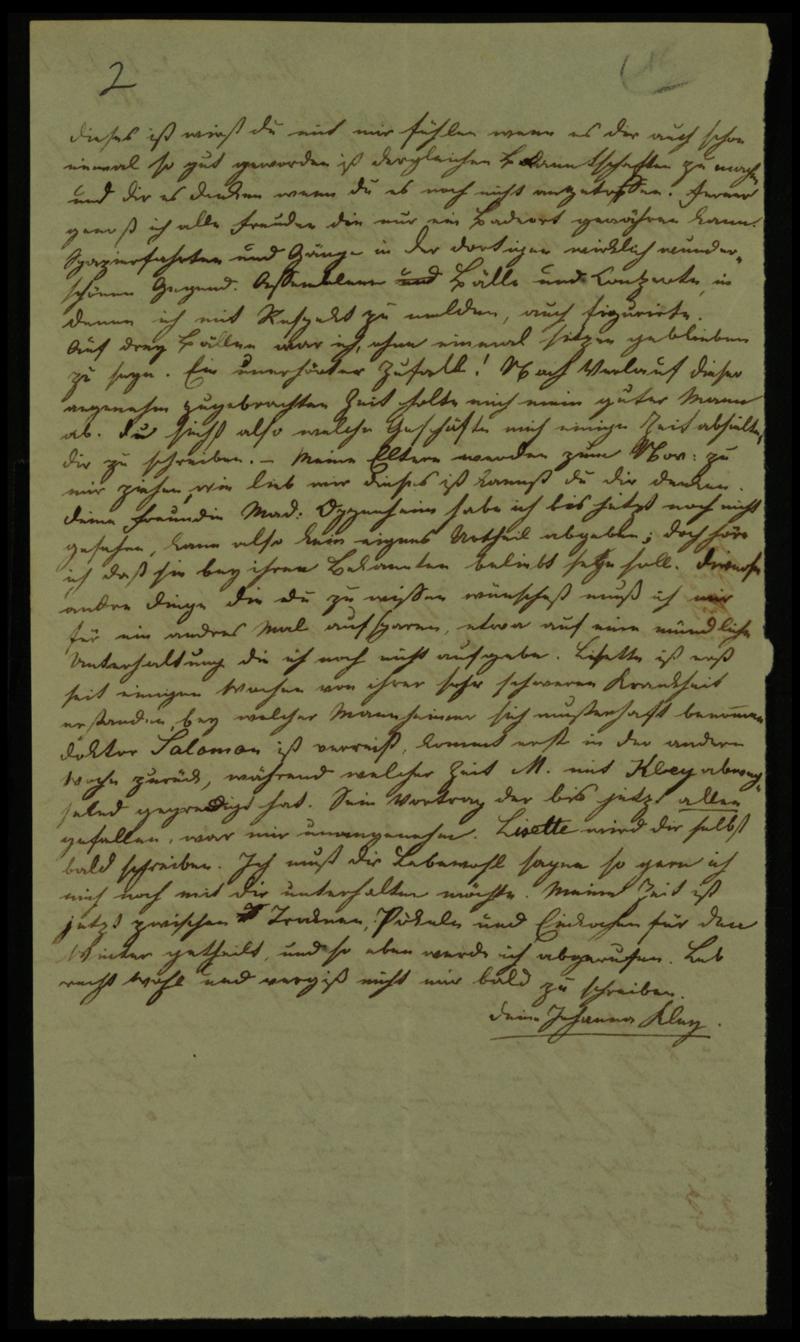 2
dieses ist wirst du mit mir fühlen wenn es der auch schon
einmal so gut geworden ist dergleichen Bekanntschaften zu machen
und dir es denken wenn du es noch nicht angetroffen. Ferner
genoß ich alle Freuden die nur ein Badeort gewähren kann.
Spazierfahrten und Gänge in der dortigen wirklich wunder-
schönen Gegend. Assembleen und Bälle und Conzerte, in
denen ich mit Respekt zu melden, auch figurirte.
Auf drey Bällen war ich, ohne einmal sitzen geblieben
zu seyn. Ein unerhörter Zufall! Nach Verlauf dieser
angenehm zugebrachten Zeit holte mich mein guter Mann
ab. Du siehst also welche Geschäfte mich einige Zeit abhielten,
dir zu schreiben. – Meine Eltern werden zum Nov: zu
mir ziehen, wie lieb mir dieses ist kannst du dir denken.
Deine Freundin Mad: Oppenheim habe ich bis jetzt noch nicht
gesehen, kann also kein eignes Urtheil abgeben; doch höre
ich daß sie bey ihren Bekannten beliebt seyn soll. Diverse
andre Dinge die du zu wissen wünschest muß ich mir
für ein andres Mal aufsparen, etwa auf eine mündliche
Unterhaltung die ich noch nicht aufgebe. Lisette ist erst
seit einigen Wochen von ihrer sehr schweren Krankheit
erstanden, bey welcher Mannheimer sich musterhaft benommen
Doktor Salomon ist verreist, kommt erst in der andern
Woche zurück, während welcher Zeit M. mit Kley abwech-
selnd gepredigt hat. Sein Vortrag der bis jetzt allen
gefallen, war mir unangenehm. Lisette wird dir selbst
bald schreiben. Ich muß dir Lebewohl sagen so gern ich
mich noch mit dir unterhalten möchte. Meine Zeit ist
jetzt zwischen Trocknen, Pökeln und Einkochen für den
Winter getheilt, und so eben werde ich abgerufen. Leb
recht wohl und vergiß nicht mir bald zu schreiben.
Deine Johanna Kley.